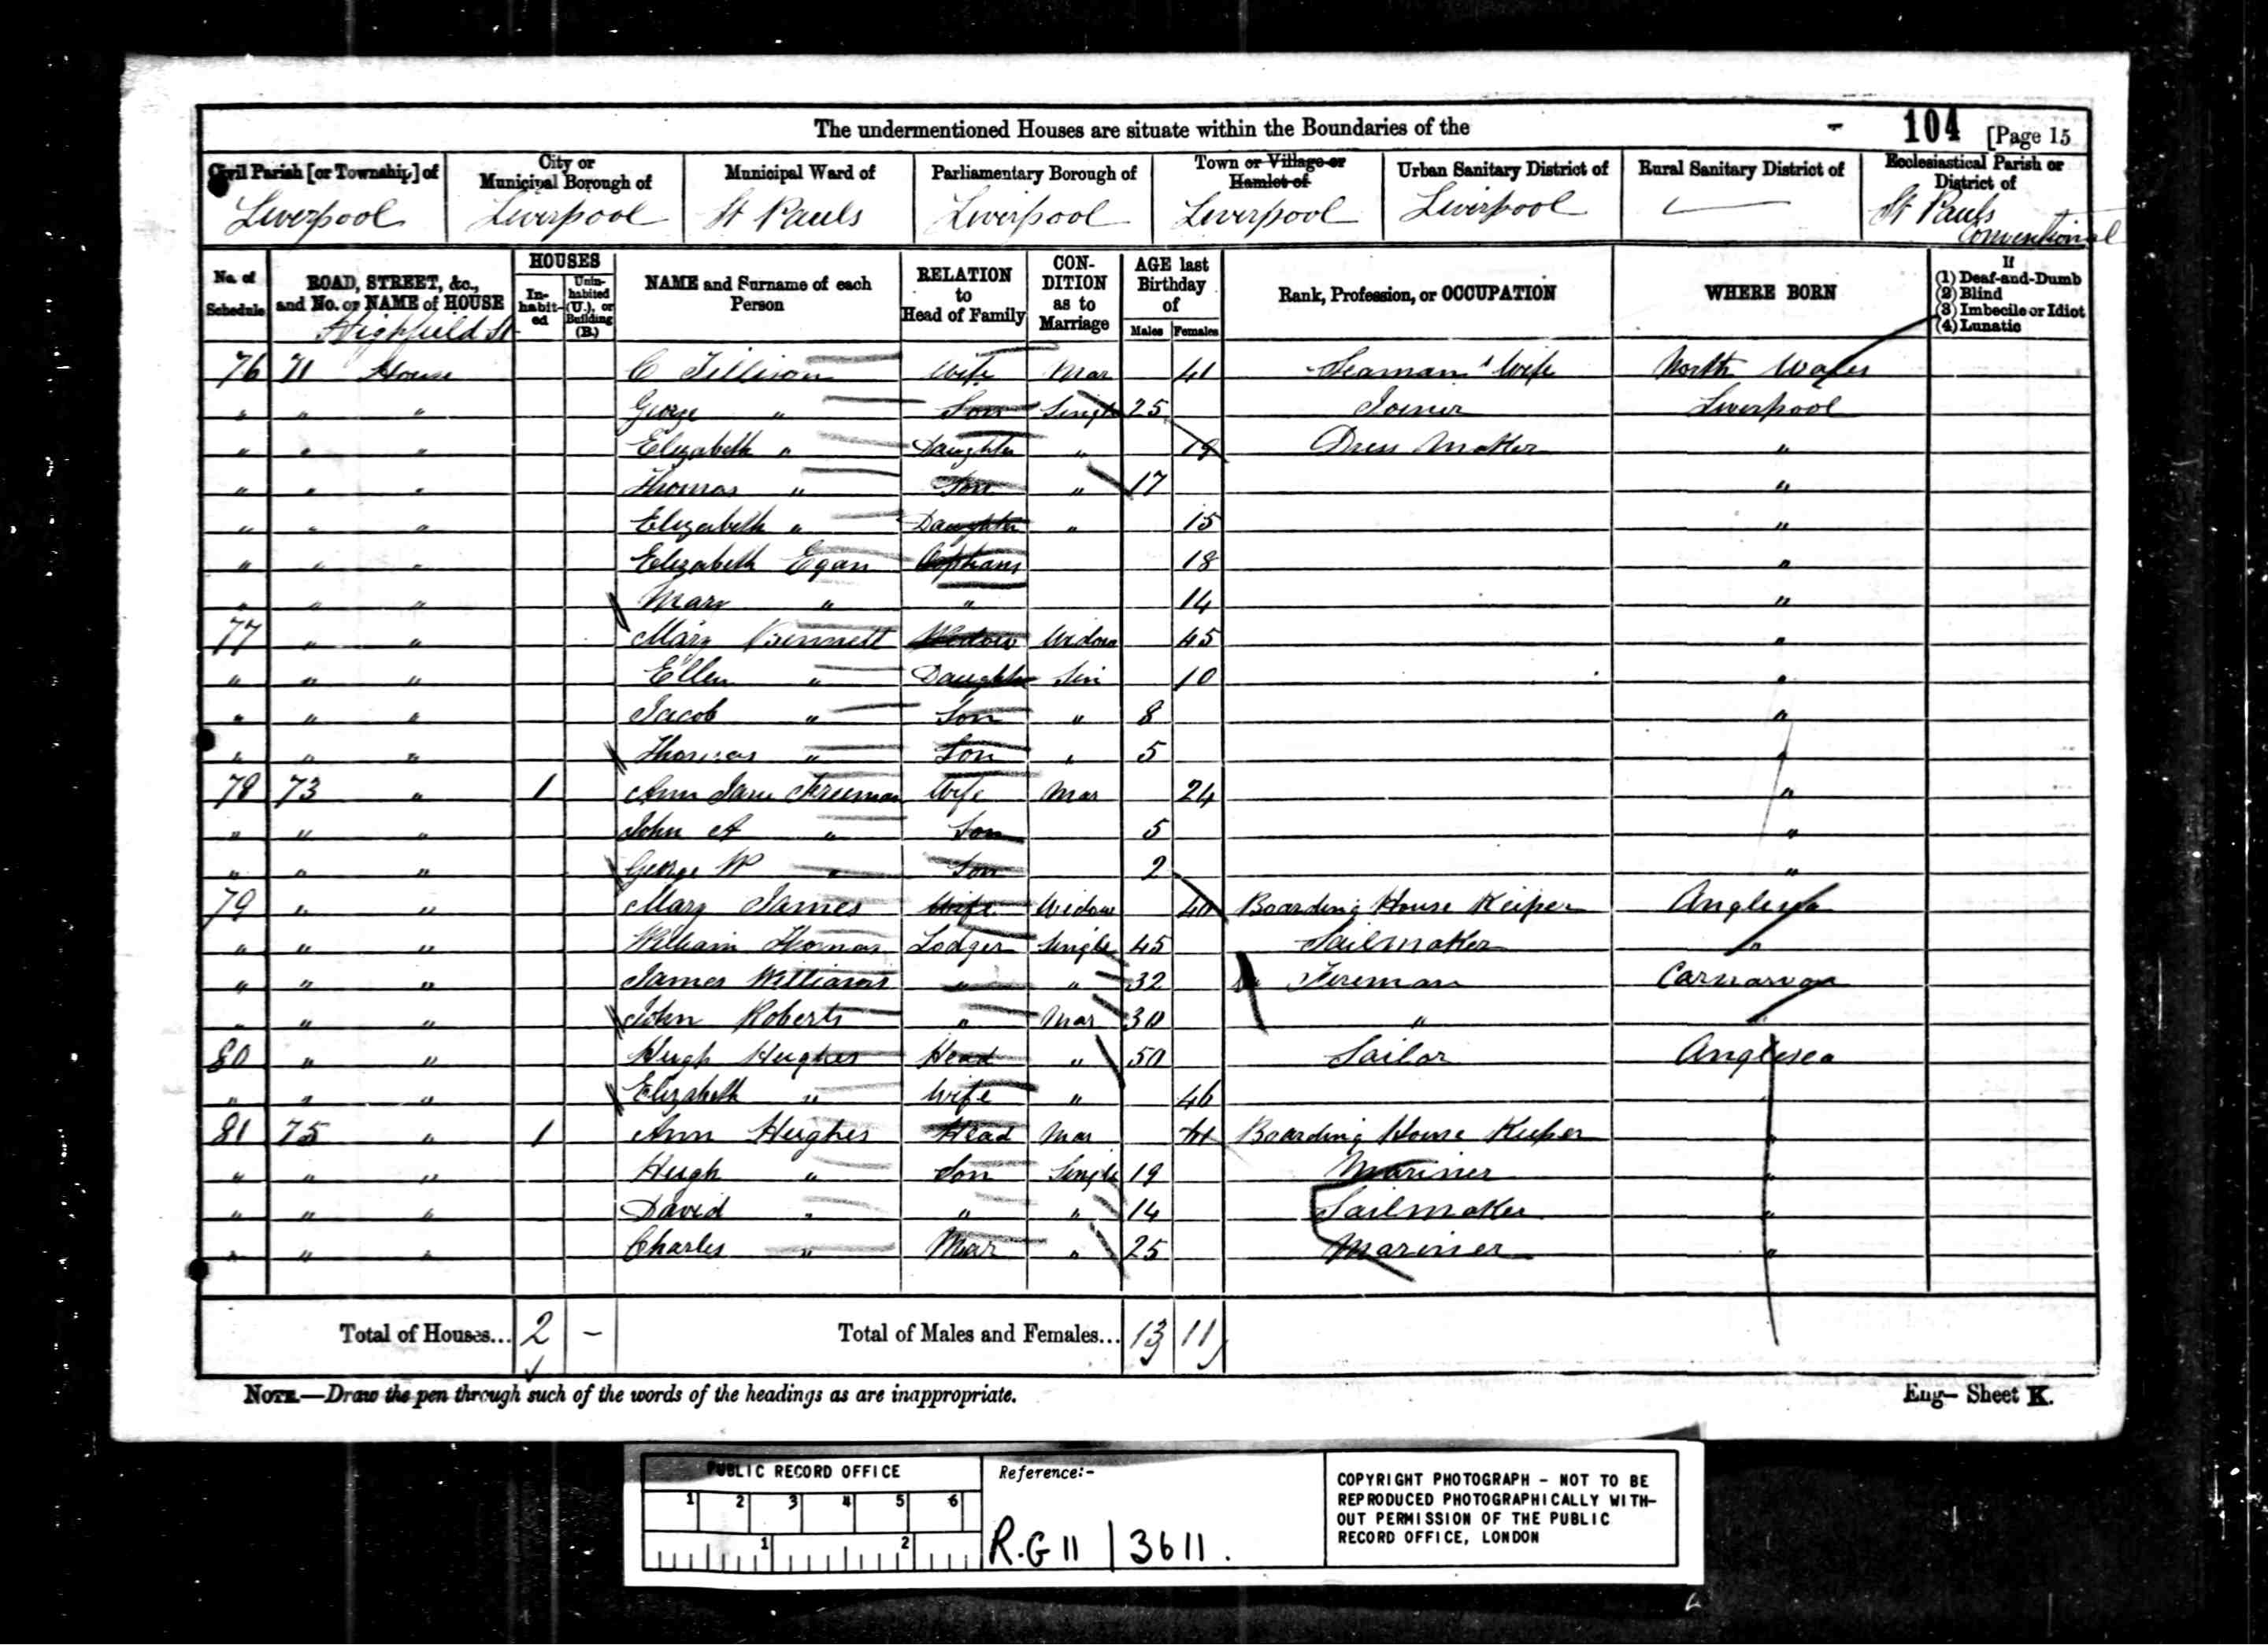 The undermentioned Houses are situate within the Boundaries of the - 104 [Page 15
Civil Parish [or Township] of
Liverpool
City or Municipal Borough of
Liverpool
Municipal Ward of
St Pauls
Parliamentary Borough of
Liverpool
Town or Village or Hamlet of
Liverpool
Urban Sanitary District of
Liverpool
Rural Sanitary District of
Ecclesiastical Parish or District of
St Pauls Conventional
No. of Schedule
ROAD, STREET, &c., and No. or NAME of HOUSE
HOUSES
In-habit-ed
Unin-habited (U.), or Building (B.)
NAME and Surname of each Person
RELATION to Head of Family
CON-DITION as to Marriage
AGE last Birthday of
Males Females
Rank, Profession, or OCCUPATION
WHERE BORN
If
(1) Deaf-and-Dumb
(2) Blind
(3) Imbecile or Idiot
(4) Lunatic
Highfield St
76 71 House C Tillison Wife Mar 41 Seaman's Wife North Wales
" " " George " Son Single 25 Joiner Liverpool
" " " Elizabeth " Daughter " 19 Dress Maker "
" " " Thomas " Son " 17 "
" " " Elizabeth " Daughter " 15 "
" " " Elizabeth Egan Orphans 18 "
" " " Mary " " 14 "
77 " " Mary Bennett Widow Widow 45 "
" " " Ellen " Daughter Sin 10 "
" " " Jacob " Son " 8 "
" " " Thomas " Son " 5 "
78 73 " 1 Ann Jane Freeman Wife Mar 24 "
" " " John A " Son 5 "
" " " George W " Son 2 "
79 " " Mary James Wife Widow 40 Boarding House Keiper Anglesea
" " " William Thomas Lodger Single 45 Sailmaker "
" " " James Williams " " 32 Fireman Carnarvon
" " " John Roberts " Mar 30 " "
80 " " Hugh Hughes Head " 50 Sailor Anglesea
" " " Elizabeth " Wife " 46 "
81 75 " 1 Ann Hughes Head Mar 41 Boarding House Keeper "
" " " Hugh " Son Single 19 Mariner "
" " " David " " " 14 Sailmaker "
" " " Charles " Mar " 25 Mariner "
Total of Houses... 2 - Total of Males and Females... 13 11
NOTE.—Draw the pen through such of the words of the headings as are inappropriate.
Eng— Sheet K.
PUBLIC RECORD OFFICE
1 2 3 4 5 6
1 2
Reference:-
R.G 11 / 3611.
COPYRIGHT PHOTOGRAPH - NOT TO BE
REPRODUCED PHOTOGRAPHICALLY WITH-
OUT PERMISSION OF THE PUBLIC
RECORD OFFICE, LONDON